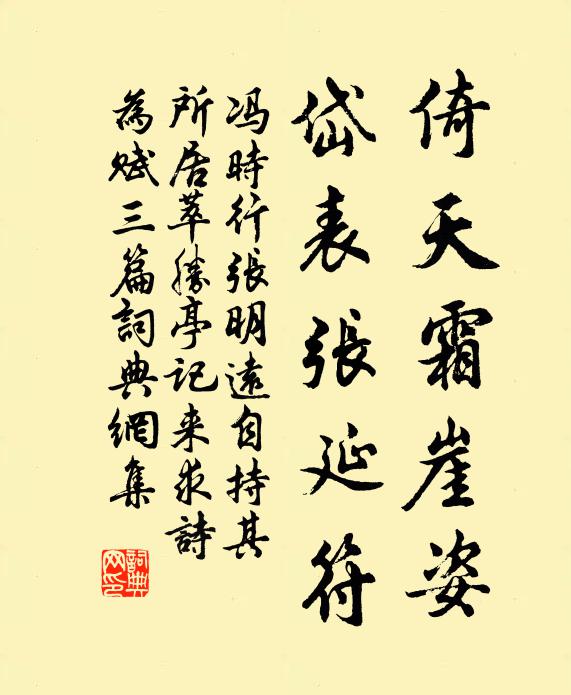 倚天霜崖姿
岱表張延符
冯時行張明遠自持其
所居萃勝亭記来求詩
為赋三篇詞典網集
詞典网印